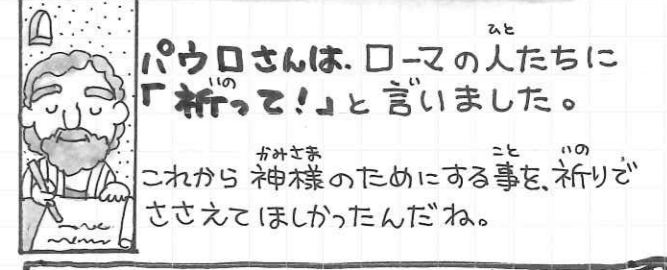 パウロさんは、ローマの人たちに
「祈って!」と言いました。
これから神様のためにする事を、祈りで
ささえてほしかったんだね。